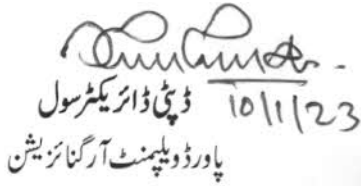 ڈپٹی ڈائریکٹر سول
10/1/23
پاور ڈویلپمنٹ آرگنائزیشن